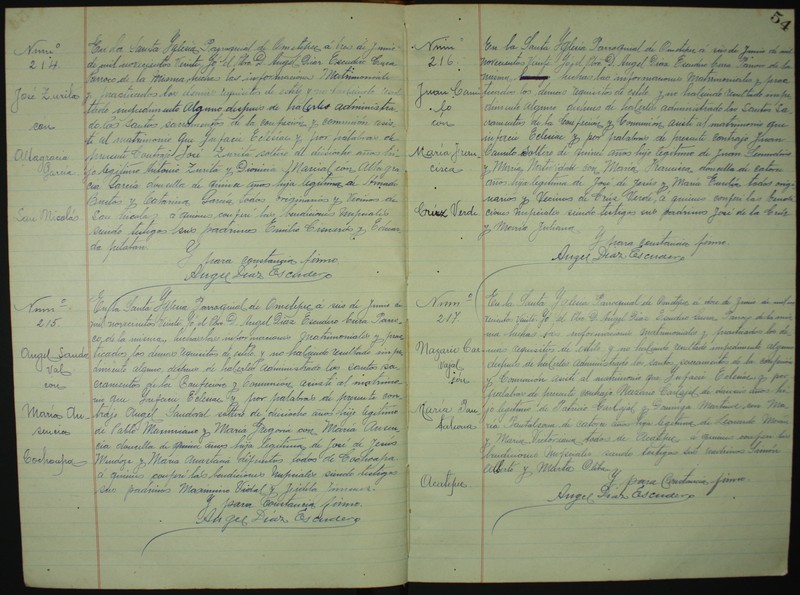 54
Num.o
214.
José Zurita
con
Altagracia
Garcia
San Nicolás
En la Santa Yglesia Parroquial de Ometepec á tres de Junio
de mil novecientos veinte Yo el Pbro. D. Angel Diaz Escudero Cura
Parroco de la misma hechas las informaciones Matrimoniales
y practicados los demas requisitos de estilo y no habiendo resul
tado impedimento Alguno despues de haberles administra
do los Santos sacramentos de la confesion y comunion asis
tí al matrimonio que Infacie Eclesiae y por palabras de
presente Contrajo José Zurita soltero de diecinueve años hi
jo legitimo Antonio Zurita y Marcial con Altagra
cia Garcia doncella de quince años hija legitima de
y Catarina Garcia, todos originarios y vecinos de
San Nicolas á quienes conferí las bendiciones nupciales
siendo testigos sus padrinos Emilio Cisneros y
Y
para constancia firmo.
Angel Díaz Escudero
Num.o
215.
Angel Sando
val
con
Maria Au
sencia
Cochoapa
En la Santa Yglesia Parroquial de Ometepec á seis de Junio de
mil novecientos veinte Yo el Pbro. D. Angel Diaz Escudero Cura Parro
co de la misma, hechas las informaciones Matrimoniales y prac
ticados los demas requisitos de estilo y no habiendo resultado impe
dimento alguno, despues de haberles Administrado los santos sa
cramentos de la Confesion y Comunion, asistí al matrimo
nio que Infacie Eclesiae y por palabras de presente con
trajo Angel Sandoval soltero de años hijo legitimo
de Pablo y Maria con Maria Ausen
cia doncella de quince años hija legitima de José de Jesús
y Maria Anastacia difuntos todos de Cochoapa
á quienes conferí las bendiciones Nupciales siendo testigos
sus padrinos Vidal y
Y para constancia firmo.
Angel Díaz Escudero
Num.o
216.
Juan Cami
lo
con
Maria Fran
cisca
Cruz Verde
En la Santa Yglesia Parroquial de Ometepec á seis de Junio de mil
novecientos veinte Yo el Pbro. D. Angel Diaz Escudero Cura Párroco de la
misma hechas las informaciones Matrimoniales y prac
ticados los demas requisitos de estilo y no habiendo resultado impe
dimento Alguno despues de haberles administrado los Santos Sa
cramentos de la Confesion y Comunion, asistí al matrimonio que
inf­acie Eclesiae y por palabras de presente contrajo Juan
Camilo soltero de quince años hijo legitimo de Juan
y Maria Natividad con Maria Francisca doncella de catorce
años hija legitima de José de Jesus y Maria todos origi
narios y Vecinos de Cruz Verde, á quienes conferí las bendi
ciones nupciales siendo testigos sus padrinos José de la Cruz
y Maria Juliana.
Y para constancia firmo.
Angel Díaz Escudero
Num.o
217.
Nazario Car
vajal
con
Maria Pan
taleona
Acatepec
En la Santa Yglesia Parroquial de Ometepec á doce de Junio de mil no
vecientos veinte Yo el Pbro. D. Angel Diaz Escudero Cura Parroco de la mis
ma hechas las informaciones matrimoniales y practicados los de
mas requisitos de estilo y no habiendo resultado impedimento alguno
despues de haberles administrado los santos sacramentos de la confesion
y Comunion asistí al matrimonio que Infacie Eclesiae y por
palabras de presente contrajo Nazario Carbajal de años hi
jo legitimo de Carbajal y Martina con Ma
ria Pantaleona de catorce años hija legitima de
y Maria Victoriana todos de Acatepec á quienes conferí las
bendiciones nupciales siendo testigos sus padrinos
y
Y para Constancia firmo.
Angel Díaz Escudero